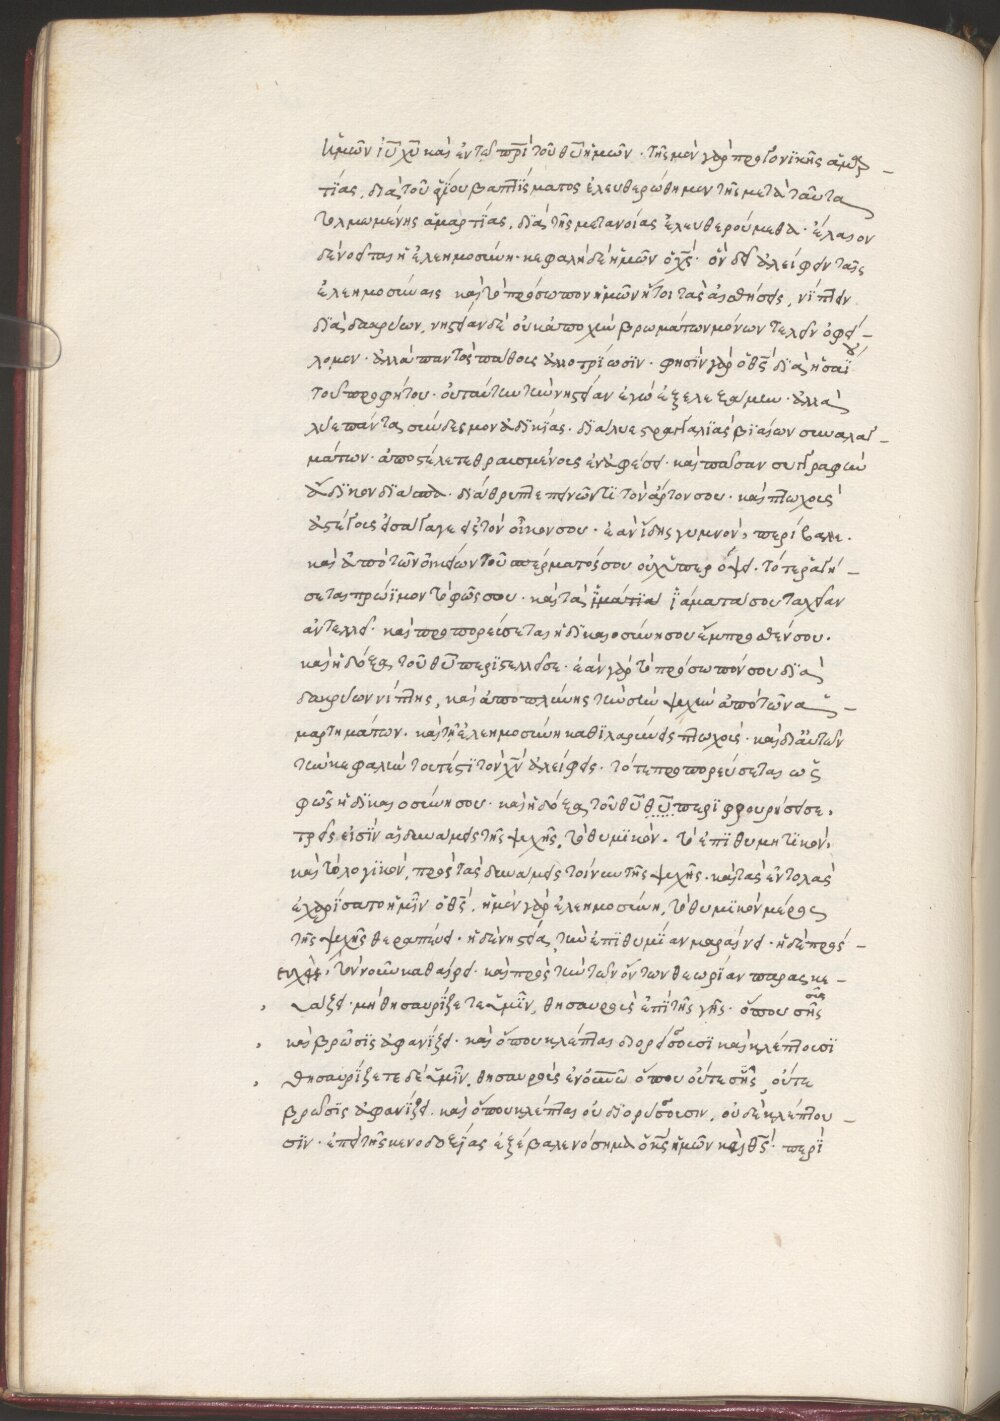 ἡμῶν ἰῦ χῦ καὶ ἐν τῶ πρὶ τοῦ θῦ ἡμῶν · τῆς μὲν γὰρ προγονϊκῆς ἁμαρ-
τίας, διὰ τοῦ θείου βαπτίσματος ἐλευθερώθημεν τῆς μετὰ ταῦτα
τολμωμένης ἁμαρτΐας, διὰ τῆς μετανοίας ἐλευθερούμεθα · ἔλαιον
δὲ νοεῖται ἡ ἐλεημοσύνη · κεφαλὴ δὲ ἡμῶν ὁ χς · ὃν δεῖ ἀλείφειν ταῖς
ἐλεημοσύναις καὶ τὸ πρόσωπον ἡμῶν ἤτοι τὰς αἰσθήσεις, νίπτειν
διὰ δακρύων, νηστείαν δὲ οὐκ ἀποχὴν βρωμάτων μόνων τελεῖν ὀφεί-
λομεν · ἀλλὰ παντὸς πάθους ἀλλοτρίωσϊν · φησὶν γὰρ ὁ θς διὰ ἡσαΐου
τοῦ προφήτου · οὐ ταύτην τὴν νηστείαν ἐγὼ ἐξελεξάμην · ἀλλὰ
λύε πάντα σύνδεσμον ἀδϊκίας · διάλυε στραγγαλϊὰς βϊαίων συναλαγ-
μάτων · ἀπόστελε τεθραυσμένους ἐν ἀφέσει · καὶ πᾶσαν συγγραφὴν
ἄδϊκον διάσπα · διάθρυπτε πεινῶντϊ τὸν ἄρτον σου · καὶ πτωχοὺς
ἀστέγους εἴσαγαγε εἰς τὸν οἶκον σου · ἐὰν ἴδης γυμνὸν, περίβαλε ·
καὶ ἀπὸ τῶν οἰκείων τοῦ σπέρματός σου οὐχ ὑπερόψει · τότε ραγή-
σεται πρώϊμον τὸ φῶς σου · καὶ τὰ ἱμάτϊα ἰάματα σου ταχεῖαν
ἀντελλεῖ · καὶ προπορεύσεται ἡ δϊκαιοσύνη σου ἔμπροσθέν σου ·
καὶ ἡ δόξα τοῦ θῦ περϊστελλεῖ σε · ἐὰν γὰρ τὸ πρόσωπόν σου διὰ
δακρύων νίπτης, καὶ ἀποπλύνης τὴν σὴν ψυχὴν ἀπὸ τῶν ἁ-
μαρτημάτων · καὶ τῆ ἐλεημοσύνη καθϊλαρύνεις πτωχοὺς · καὶ δι αὐτῶν
τὴν κεφαλὴν τουτέστϊ τὸν χν ἀλείφεις · τότε προπορεύσεται ὡς
φῶς ἡ δϊκαιοσύνη σου · καὶ ἡ δόξα τοῦ θῦ θῦ περϊφρουρήσει σε,
τρεῖς εἰσὶν αἱ δυνάμεις τῆς ψυχῆς, τὸ θυμϊκόν · τὸ ἐπϊθυμητϊκόν,
καὶ τὸ λογϊκόν, πρὸς τὰς δυνάμεις τοίνυν τῆς ψυχῆς · καὶ τὰς ἐντολὰς
ἐχαρϊσατο ἡμῖν ὁ θς, ἡ μὲν γὰρ ἐλεημοσύνη, τὸ θυμϊκὸν μέρος
τῆς ψυχῆς θεραπεύει · ἡ δὲ νηστεία, τὴν ἐπϊθυμΐαν μαραίνει · ἡ δὲ προσ-
ευχὴ, τὸν νοῦν καθαίρει · καὶ πρὸς τὴν τῶν ὄντων θεωρίαν παρασκε-
υάζει · μὴ θησαυρΐζετε ὑμῖν, θησαυροὺς ἐπὶ τῆς γῆς · ὅπου σῆς
καὶ βρῶσϊς ἀφανΐζει · καὶ ὅπου κλέπται διορύσσουσϊ καὶ κλέπτουσϊ
θησαυρΐζετε δὲ ὑμῖν, θησαυροὺς ἐν οὐνῶ ὅπου οὔτε σῆς, οὔτε
βρῶσϊς ἀφανΐζει · καὶ ὅπου κλέπται οὐ δϊορύσσουσιν, οὐδὲ κλέπτου-
σϊν · ἐπεὶ τῆς κενοδοξΐας ἐξέβαλε νόσημα ὁ κς ἡμῶν καὶ θς · περϊ